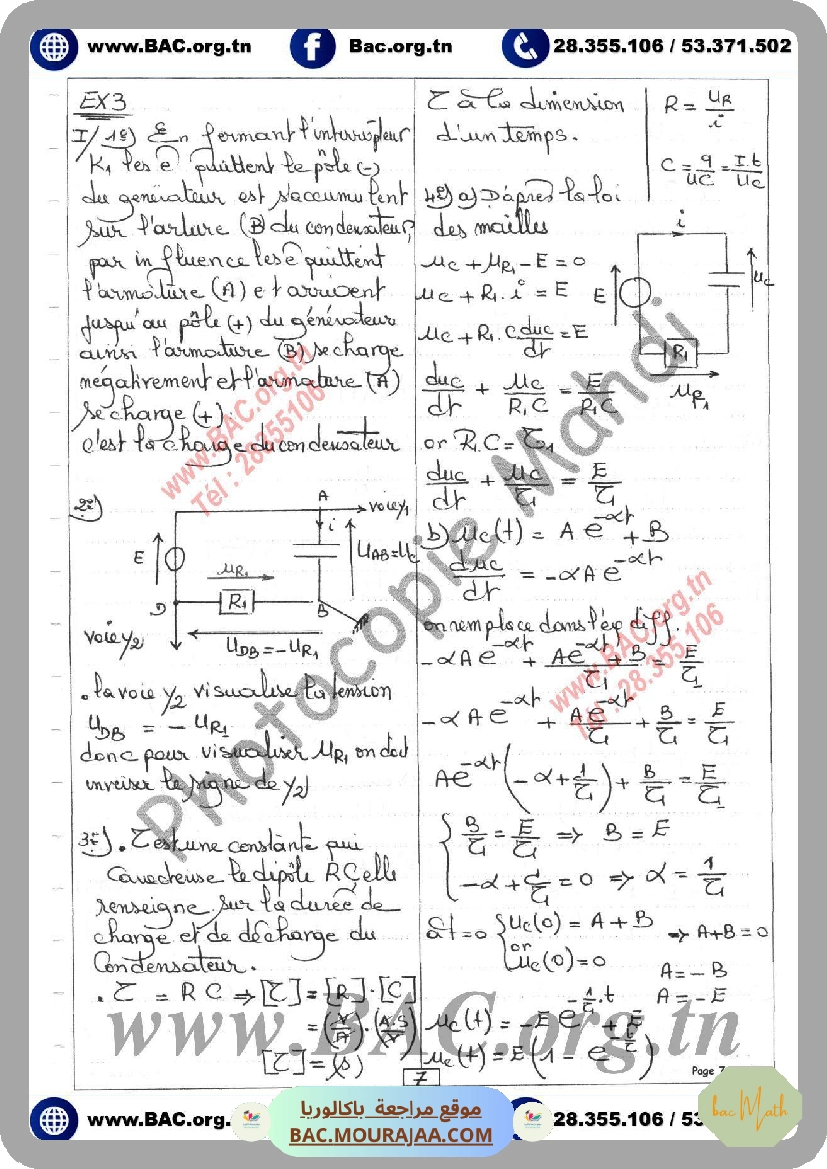 www.BAC.org.tn
Bac.org.tn
28.355.106 / 53.371.502
EX3
I/ 1°) En fermant l'interrupteur
K₁ les e⁻ quittent le pôle (-)
du générateur est s'accumulent
sur l'arture (B) du condensateur,
par influence les e⁻ quittent
l'armature (A) et arrivent
jusqu'au pôle (+) du générateur
ainsi l'armature (B) se charge
négativement et l'armature (A)
se charge (+).
c'est la charge du condensateur
2°)
A
voie y₁
i
E
U_AB = U_C
u_R₁
D
R₁
B
voie y₂
U_DB = -U_R₁
. la voie y₂ visualise la tension
U_DB = - U_R₁
donc pour visualiser u_R₁ on doit
inverser le signe de y₂
3°) . τ est une constante qui
Caractérise le dipôle RC elle
renseigne sur la durée de
charge et de décharge du
Condensateur.
. τ = RC ⇒ [τ] = [R] . [C]
= (V/A) . (A.S/V)
[τ] = (s)
τ à la dimension
d'un temps.
R = U_R/i
C = q/UC = I.t/UC
4°) a) D'après la loi
des mailles
u_C + u_R₁ - E = 0
u_C + R₁.i = E
u_C + R₁.C du_C/dt = E
du_C/dt + u_C/R₁C = E/R₁C
or R₁C = τ₁
du_C/dt + u_C/τ₁ = E/τ₁
i
E
u_C
R₁
u_R₁
b) u_C(t) = A e^-αt + B
du_C/dt = -αA e^-αt
on remplace dans l'éq diff.
-αA e^-αt + (A e^-αt + B)/τ₁ = E/τ₁
-αA e^-αt + A e^-αt/τ₁ + B/τ₁ = E/τ₁
A e^-αt (-α + 1/τ₁) + B/τ₁ = E/τ₁
{ B/τ₁ = E/τ₁ ⇒ B = E
-α + 1/τ₁ = 0 ⇒ α = 1/τ₁
à t=0 { u_C(0) = A + B
or
u_C(0) = 0
⇒ A+B = 0
A = -B
A = -E
u_C(t) = -E e^-1/τ₁.t + E
u_C(t) = E(1 - e^-t/τ₁)
7
Page 7
Photocopie Mahdi
www.BAC.org.tn
Tél : 28355106
www.BAC.org.tn
Tél : 28.355.106
www.BAC.org.tn
www.BAC.org.
موقع مراجعة باكالوريا
BAC.MOURAJAA.COM
28.355.106 / 53
bac Math